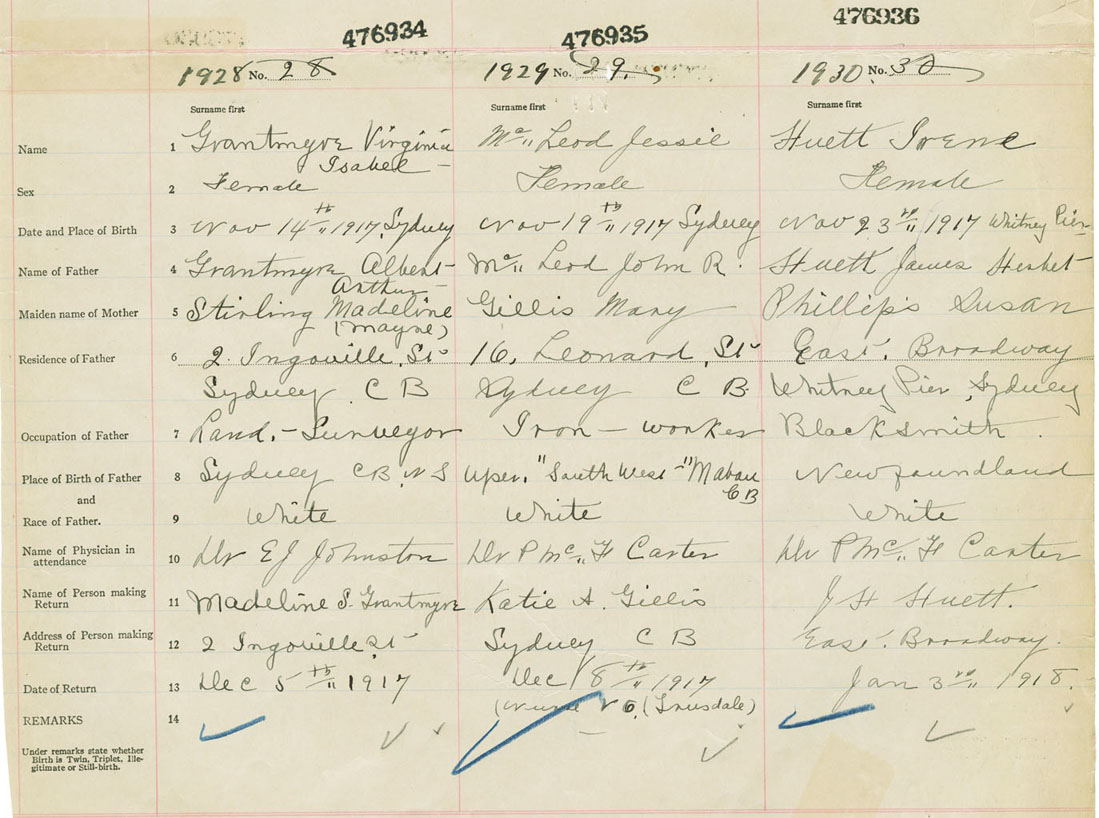 476934
476935
476936
1928 No. 28
1929 No. 29.
1930 No. 30
Surname first
Surname first
Surname first
Name 1 Grantmyre Virginia Mc Leod Jessie Huett Irene
Isabel
Sex 2 Female Female Female
Date and Place of Birth 3 Nov 14th 1917, Sydney Nov 19th 1917 Sydney Nov 23rd 1917 Whitney Pier
Name of Father 4 Grantmyre Albert Mc Leod John R. Huett James
Arthur
Maiden name of Mother 5 Stirling Madeline Gillis Mary Phillips Susan
(Mayne)
Residence of Father 6 2. Ingouville, St 16, Leonard, St East. Broadway
Sydney C B Sydney C B Whitney Pier, Sydney
Occupation of Father 7 Land,-Surveyor Iron-worker Blacksmith.
Place of Birth of Father 8 Sydney CB, NS "South West" Mabou Newfoundland
and CB
Race of Father. 9 White White White
Name of Physician in 10 Dr EJ Johnston Dr P Mc F Carter Dr P Mc F Carter
attendance
Name of Person making 11 Madeline S. Grantmyre Katie A. Gillis J H Huett.
Return
Address of Person making 12 2 Ingouville St Sydney C B East. Broadway.
Return
Date of Return 13 Dec 5th 1917 Dec 18th 1917 Jan 3rd 1918.
(Nurse
REMARKS 14
Under remarks state whether
Birth is Twin, Triplet, Ille-
gitimate or Still-birth.